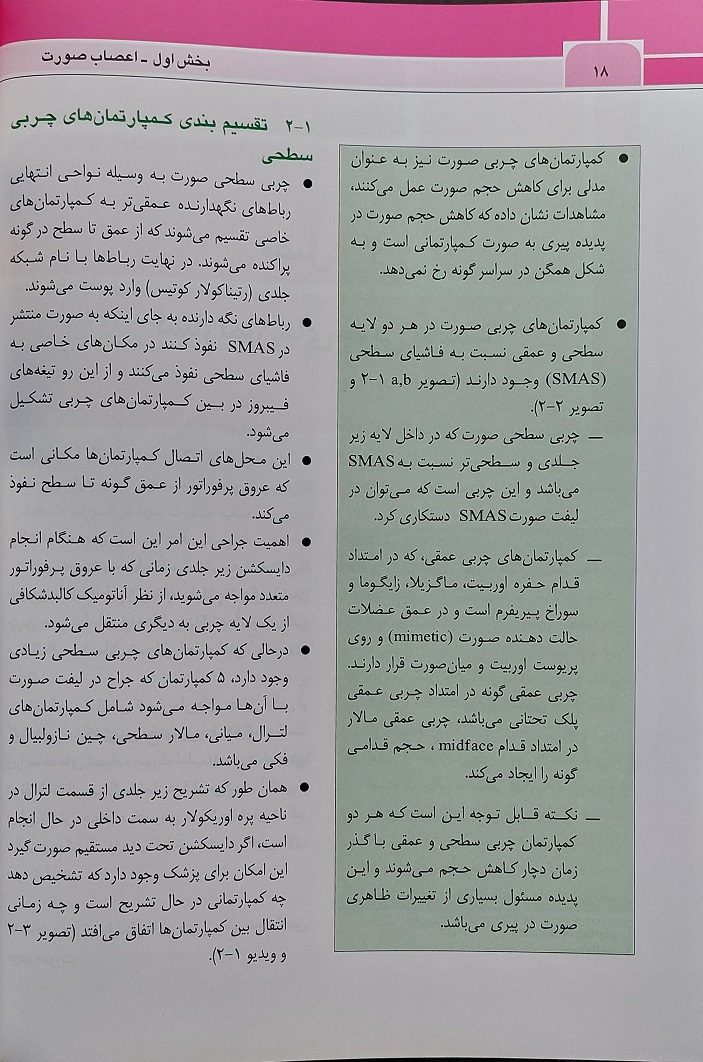 ۱۸
بخش اول - اعصاب صورت
● کمپارتمان‌های چربی صورت نیز به عنوان
مدلی برای کاهش حجم صورت عمل می‌کنند،
مشاهدات نشان داده که کاهش حجم صورت در
پدیده پیری به صورت کمپارتمانی است و به
شکل همگن در سراسر گونه رخ نمی‌دهد.
● کمپارتمان‌های چربی صورت در هر دو لایه
سطحی و عمقی نسبت به فاشیای سطحی
(SMAS) وجود دارند (تصویر a,b ۲-۱ و
تصویر ۲-۲).
— چربی سطحی صورت که در داخل لایه زیر
جلدی و سطحی‌تر نسبت به SMAS
می‌باشد و این چربی است که می‌توان در
لیفت صورت SMAS دستکاری کرد.
— کمپارتمان‌های چربی عمقی، که در امتداد
قدام حفره اوربیت، ماگزیلا، زایگوما و
سوراخ پیریفرم است و در عمق عضلات
حالت دهنده صورت (mimetic) و روی
پریوست اوربیت و میان‌صورت قرار دارند.
چربی عمقی گونه در امتداد چربی عمقی
پلک تحتانی می‌باشد، چربی عمقی مالار
در امتداد قدام midface، حجم قدامی
گونه را ایجاد می‌کند.
— نکته قابل توجه این است که هر دو
کمپارتمان چربی سطحی و عمقی با گذر
زمان دچار کاهش حجم می‌شوند و این
پدیده مسئول بسیاری از تغییرات ظاهری
صورت در پیری می‌باشد.
۲-۱ تقسیم بندی کمپارتمان‌های چربی
سطحی
● چربی سطحی صورت به وسیله نواحی انتهایی
رباط‌های نگهدارنده عمقی‌تر به کمپارتمان‌های
خاصی تقسیم می‌شوند که از عمق تا سطح در گونه
پراکنده می‌شوند. در نهایت رباط‌ها با نام شبکه
جلدی (رتیناکولار کوتیس) وارد پوست می‌شوند.
● رباط‌های نگه دارنده به جای اینکه به صورت منتشر
در SMAS نفوذ کنند در مکان‌های خاصی به
فاشیای سطحی نفوذ می‌کنند و از این رو تیغه‌های
فیبروز در بین کمپارتمان‌های چربی تشکیل
می‌شود.
● این محل‌های اتصال کمپارتمان‌ها مکانی است
که عروق پرفوراتور از عمق گونه تا سطح نفوذ
می‌کند.
● اهمیت جراحی این امر این است که هنگام انجام
دایسکشن زیر جلدی زمانی که با عروق پرفوراتور
متعدد مواجه می‌شوید، از نظر آناتومیک کالبدشکافی
از یک لایه چربی به دیگری منتقل می‌شود.
● درحالی که کمپارتمان‌های چربی سطحی زیادی
وجود دارد، ۵ کمپارتمان که جراح در لیفت صورت
با آن‌ها مواجه می‌شود شامل کمپارتمان‌های
لترال، میانی، مالار سطحی، چین نازولبیال و
فکی می‌باشد.
● همان طور که تشریح زیر جلدی از قسمت لترال در
ناحیه پره اوریکولار به سمت داخلی در حال انجام
است، اگر دایسکشن تحت دید مستقیم صورت گیرد
این امکان برای پزشک وجود دارد که تشخیص دهد
چه کمپارتمانی در حال تشریح است و چه زمانی
انتقال بین کمپارتمان‌ها اتفاق می‌افتد (تصویر ۳-۲
و ویدیو ۱-۲).